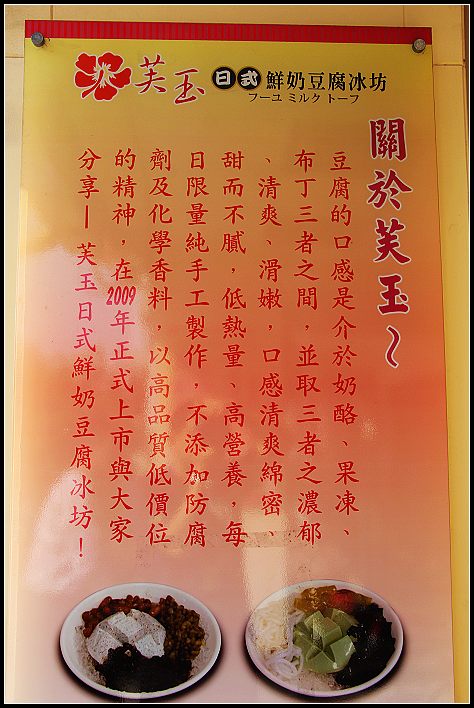 芙玉日式鮮奶豆腐冰坊
フーユ ミルク トーフ
關於芙玉～
豆腐的口感是介於奶酪、果凍、
布丁三者之間，並取三者之濃郁
、清爽、滑嫩，口感清爽綿密、
甜而不膩，低熱量、高營養，每
日限量純手工製作，不添加防腐
劑及化學香料，以高品質低價位
的精神，在2009年正式上市與大家
分享—芙玉日式鮮奶豆腐冰坊！